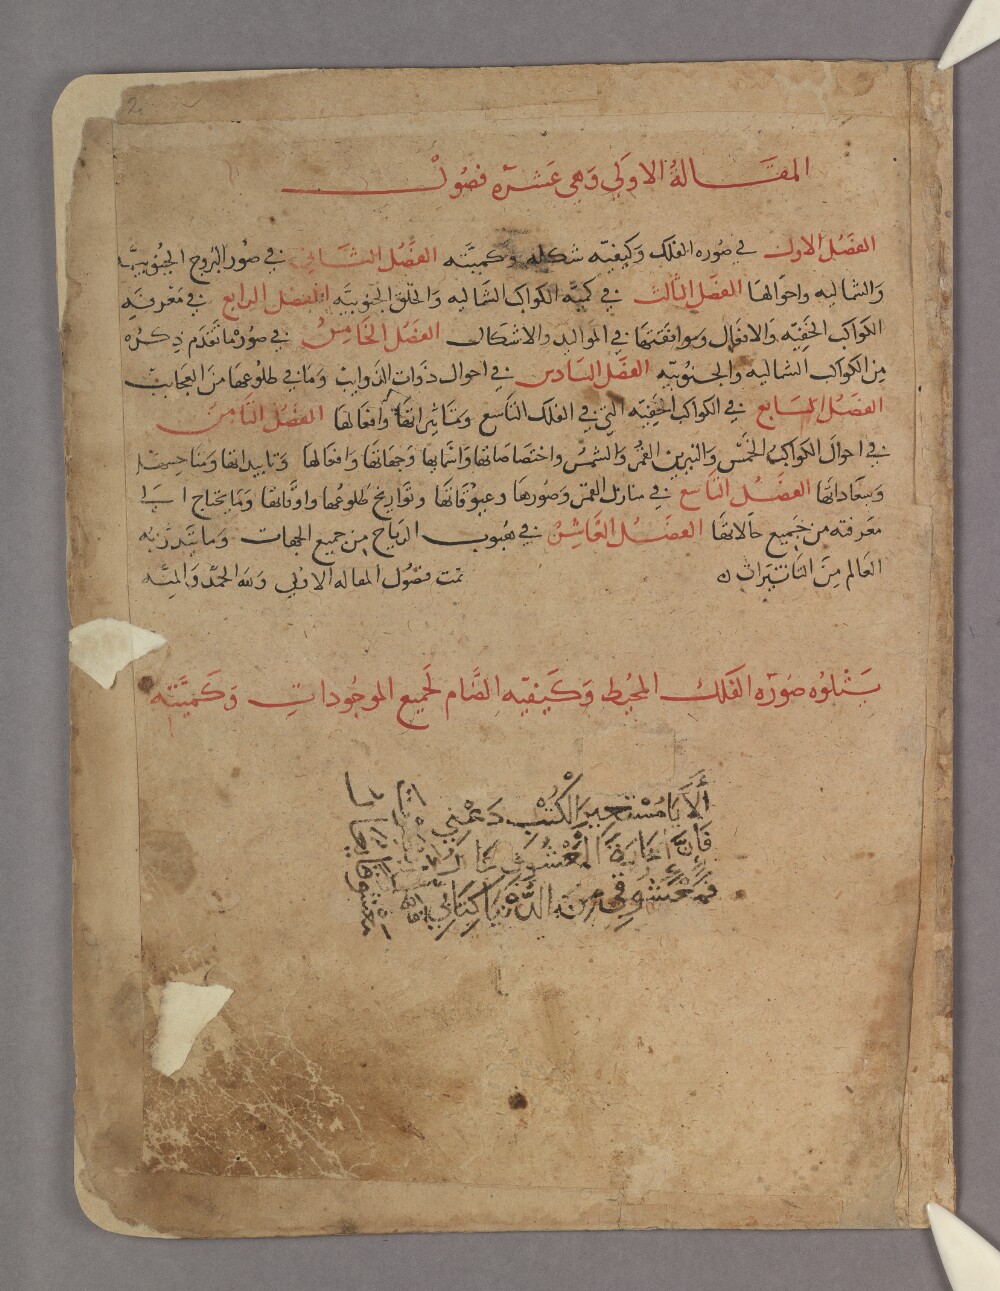 2
المقالة الاولى وهي عشره فصول
الفصل الاول في صوره الفلك وكيفيه شكله وكميته الفصل الثاني في صور البروج الجنوبيه
والشماليه واحوالها الفصل الثالث في كميه الكواكب الشماليه والخلق الجنوبيه الفصل الرابع في معرفه
الكواكب الخفيه والافعال وموافقتها في المواليد والاشكال الفصل الخامس في صور ما تقدم ذكره
من الكواكب الشماليه والجنوبيه الفصل السادس في احوال ذوات الذوايب وما في طلوعها من العجايب
الفصل السابع في الكواكب الخفيه التي في الفلك التاسع وتاثيراتها وافعالها الفصل الثامن
في احوال الكواكب الخمس والنيرين القمر والشمس واختصاصاتها واسمايها وجهاتها وافعالها وتاييداتها ومناحسها
وسعاداتها الفصل التاسع في منازل القمر وصورها وعيوقاتها وتواريخ طلوعها واوقاتها وما يحتاج الى
معرفته من جميع حالاتها الفصل العاشر في هبوب الرياح من جميع الجهات وما تندر به
العالم من التاثيرات تمت فصول المقاله الاولى ولله الحمد والمنه
يتلوه صوره الفلك المحيط وكيفيه الضام لجميع الموجودات وكميته
ألا يا مستعير الكتب دعني
فان اعارة المعشوق عار
فمعشوقي من الدنيا كتابي